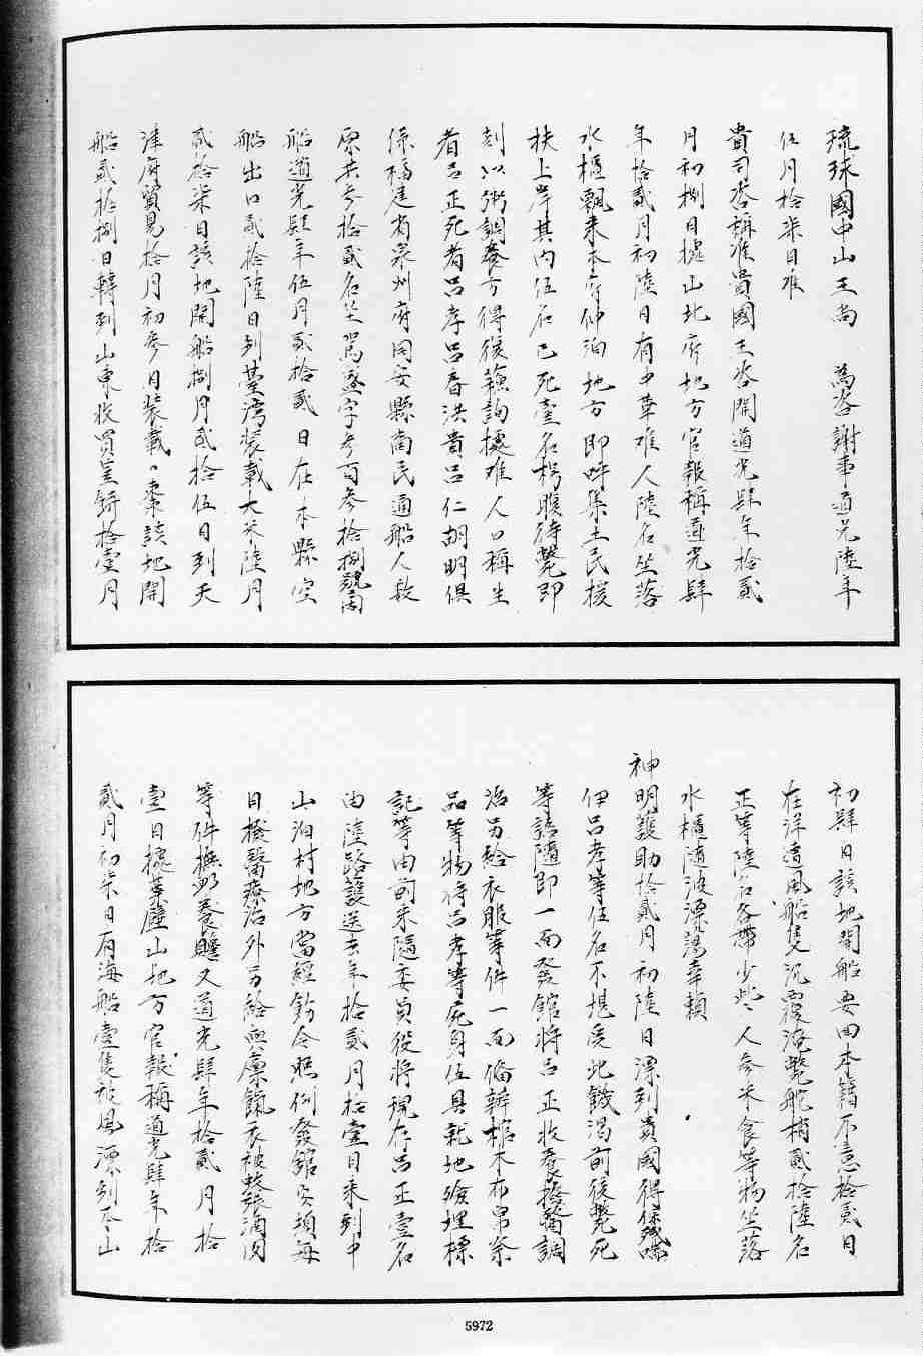 琉球國中山王尚　為咨謝事道光陸年
伍月拾柒日准
貴司咨稱准貴國王咨開道光肆年拾貳
月初捌日據山北府地方官報稱道光肆
年拾貳月初陸日有中華难人陸名坐落
水櫃飄來本府仲泊地方即呼集土民援
扶上岸其内伍名已死壹名枵腹待斃即
刻以粥調養方得後蘓詢據难人口稱生
者呂正死者呂孝呂春洪貴呂仁胡明俱
係福建省泉州府同安縣商民通船人数
原共参拾貳名坐駕盛字参百参拾捌號商
船道光肆年伍月貳拾貳日在本縣空
船出口貳拾陸日到臺湾装載大米陸月
貳拾柒日該地開船捌月貳拾伍日到天
津府貿易拾月初参日装載〻棗該地開
船貳拾捌日轉到山東收買呈餅拾壹月
初肆日該地開船要回本籍不意拾貳日
在洋遭風船隻沉覆淹斃舵梢貳拾陸名
正等陸名各帶少些〻人参米食等物坐落
水櫃随波漂蕩幸賴
神明護助拾貳月初陸日漂到貴國得保残喋
伊呂孝等伍名不堪受此饑渴前後斃死
等語随即一面發館將呂正收養撥醫調
治另給衣服等件一面俻辦棺木布帛祭
品等物将呂孝等死身伍具就地殮埋標
記等由前来随委員役将現存呂正壹名
由陸路護送去年拾貳月拾壹日来到中
山泊村地方當經飭令照例發館安頓每
日撥醫療治外另給與廪餼衣被蚊張酒肉
等件撫恤養贍又道光肆年拾貳月拾
壹日據葉壁山地方官報稱道光肆年拾
貳月初柒日有海船壹隻被風漂到本山
5972